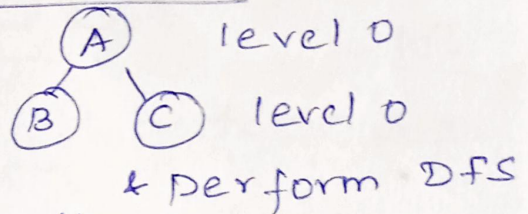 A level 0
B C level 0
& Perform DFS